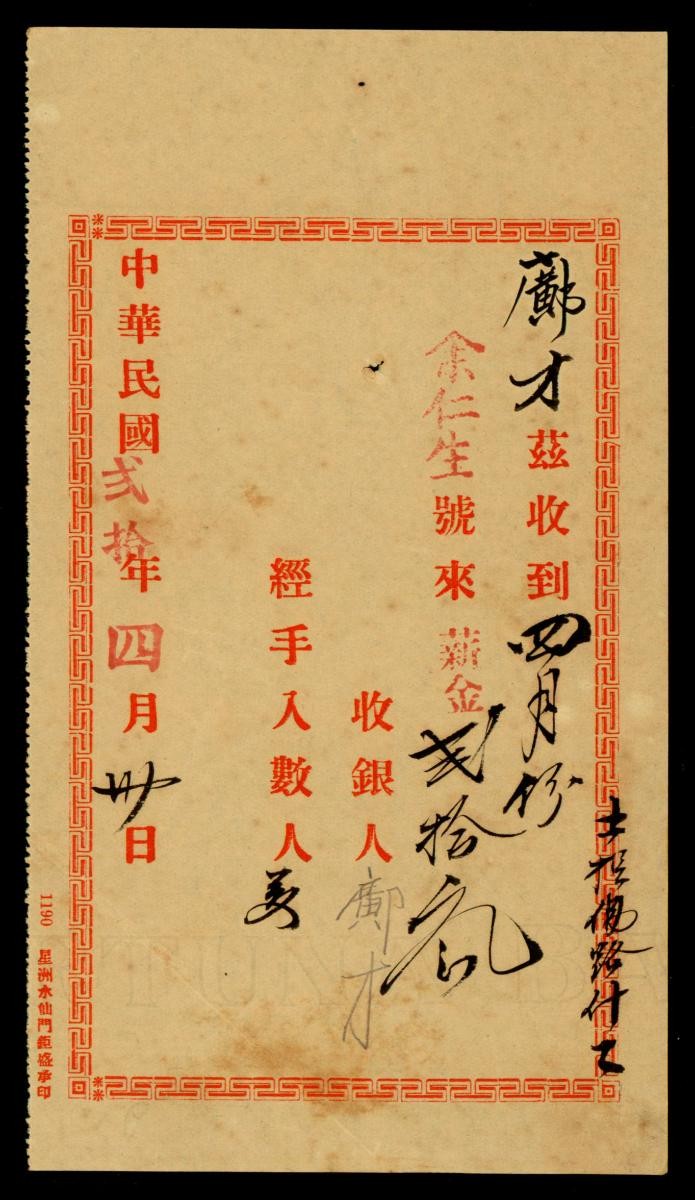 路什工
鄺才茲收到四月份
余仁生號來薪金弍拾元
收銀人鄺才
經手入數人
中華民國弍拾年四月卅日
1190 星洲水仙門鉅盛承印